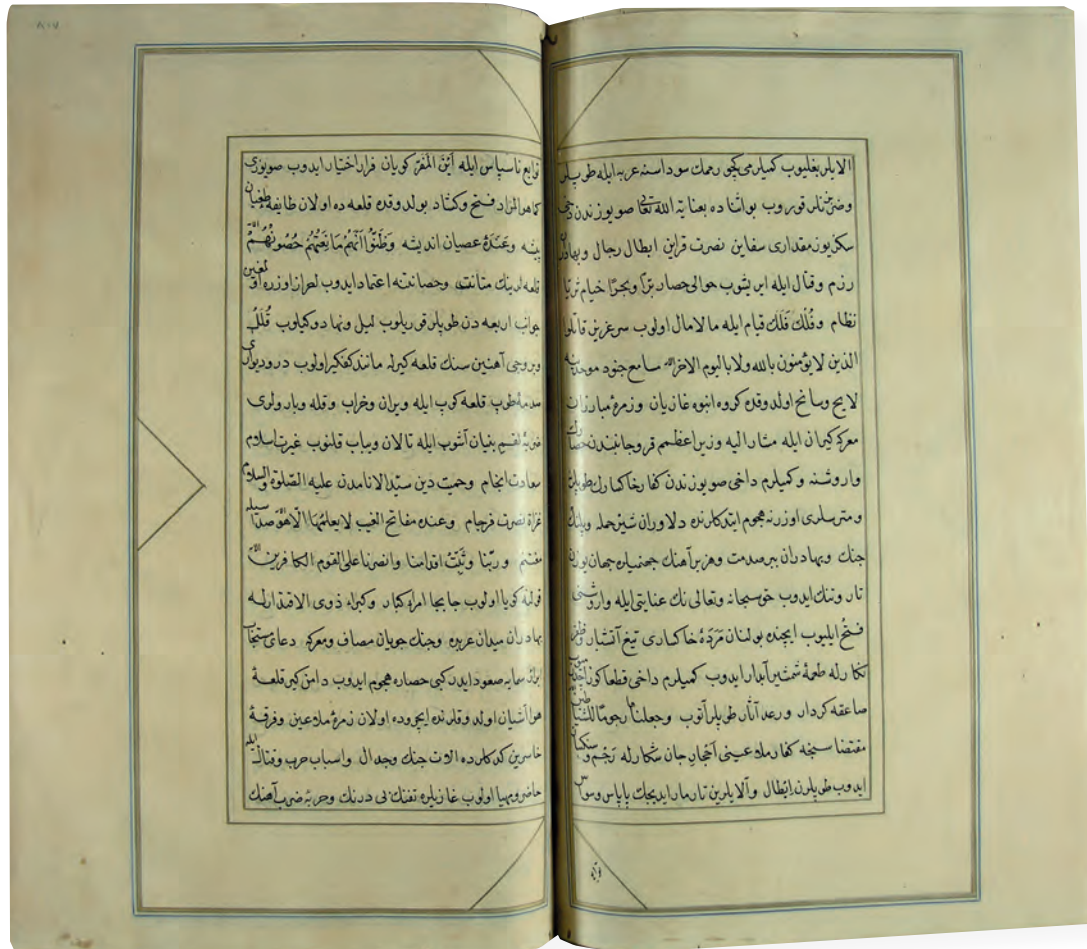 الايلر بغليوب كميلرمى كچورمك سوداسنه عربه ايله طوپلر
وضربزنلر قوروب بو اثناده بعناية الله تعالى صو يوزندن دخى
سكز يوز مقدارى سفاين نصرت قراين ابطال رجال وبهادران
رزم وقتال ايله ايريشوب حوالى حصار برًّا وبحرًا خيام ثريا
نظام وفُلك فَلك قيام ايله مالامال اولوب سر عزيز قاتلوا
الذين لا يؤمنون بالله ولا باليوم الاخر الآيه سامع جنود موحدينه
لايح وسانح اولدوقده كروه انبوه غازيان وزمرهٔ مبارزان
معركه كيران ايله مشار اليه وزير اعظم قره جانبندن حصارك
واروشنه وكميلرم داخى صو يوزندن كفار خاكسارك طوپلرى
ومترسلرى اوزرنه هجوم ايتدكلرنده دلاوران شير حمله وپلنك
جنك وبهادران ببر صدمت وهزبر آهنك جهنميلره جهان يوزن
تار وتنك ايدوب حق سبحانه وتعالى نك عنايتى ايله واروشنى
فتح ايليوب ايچنده بولنان مَرَدهٔ خاكسارى تيغ آتشبار وظفر
شكارله طعمهٔ شمشير آبدار ايدوب كميلرم داخى
صاعقه كردار ورعد آثار طوپلر آتوب وجعلناها رجوما للشياطين
مقتضاسنجه كفار ملاعينى احجار جان شكارله رَجْم وسنكسار
ايدوب طوپلرن ابطال وآلايلرين تارمار ايديجك پاپاس وسواس
توابع ناسپاس ايله أين المفرّ كويان فرار اختيار ايدوب صو يوزى
كما هو المراد فتح وكشاد بولدوقده قلعه ده اولان طايفهٔ طغيان
پيشه وعَنَدهٔ عصيان انديشه وَظَنُّوا أَنَّهُمْ مَانِعَتُهُمْ حُصُونُهُمْ
قلعه لرينك متانت وحصانتنه اعتماد ايدوب
جوانب اربعه دن طوپلر قوريلوب ليل ونهار دوكيلوب قُلَل
وبروجى آهنين سنك قلعه كيرله مانند كفكير اولوب در وديوارى
صدمهٔ طوپ قلعه كوب ايله ويران وخراب وقله وبارولرى
ضربهٔ بنيان آشوب ايله تالان ويباب قلنوب غيرت اسلام
سعادت انجام وحميت دين سيّد الانامدن عليه الصّلوة والسلام
غزاة نصرت فرجام وعنده مفاتح الغيب لا يعلمها الّا هو صداسيله
مغتنم وربّنا وثبّت اقدامنا وانصرنا على القوم الكافرين
قولنه كويا اولوب جابجا امراء كبار وكبراء ذوى الاقتدارله
بهادران ميدان عربده وجنك جويان مصاف ومعركه دعاى مستجاب
سمايه صعود ايدر كبى حصاره هجوم ايدوب دامن كير قلعهٔ
هوا آشيان اولدوقلرنده ايچروده اولان زمرهٔ ملاعين وفرقهٔ
خاسرين كدكلرده آلات جنك وجدال واسباب حرب وقتال ايله
حاضر ومهيا اولوب غازيلره تفنك فى درنك وحربهٔ ضرب آهنك